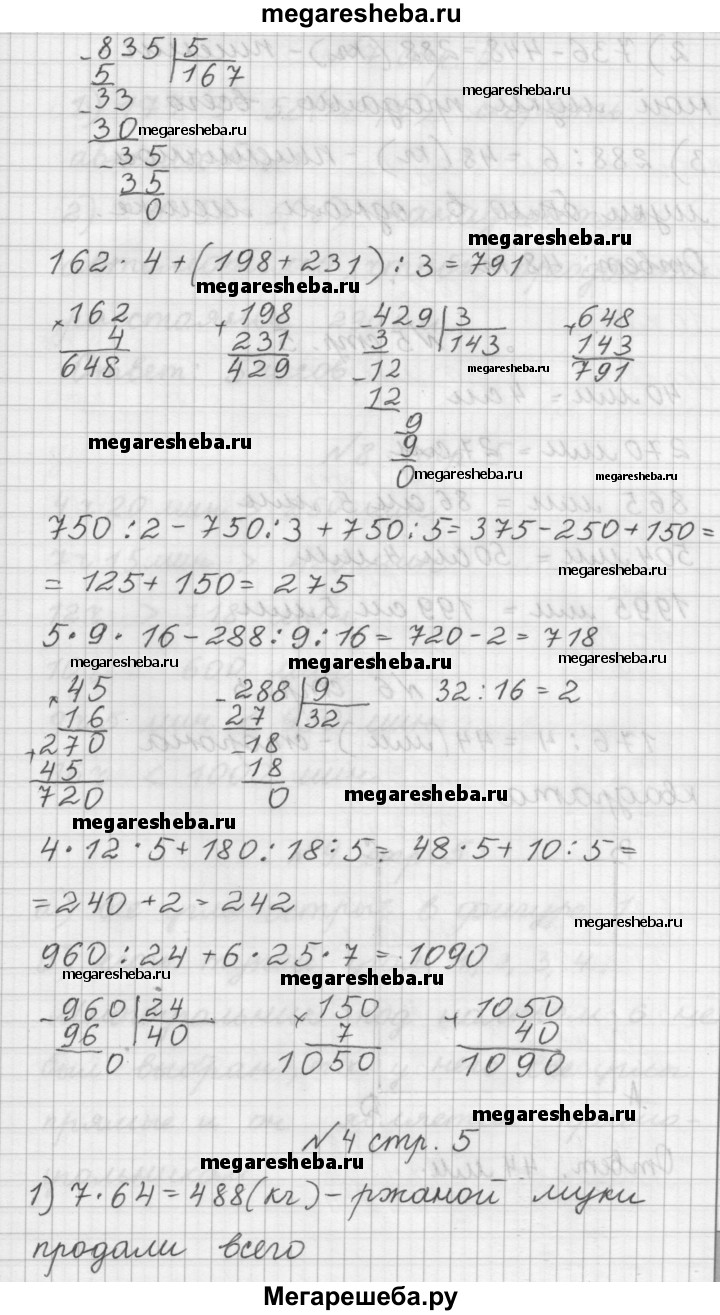 megaresheba.ru
- 835 | 5
5 167
- 33
megaresheba.ru
30 megaresheba.ru
- 35
35
0
megaresheba.ru
162 · 4 + (198 + 231) : 3 = 791
megaresheba.ru
× 162 + 198 - 429 | 3 + 648
4 231 3 143 143
648 429 - 12 791
megaresheba.ru
12
9
megaresheba.ru
9
0 megaresheba.ru megaresheba.ru
750 : 2 - 750 : 3 + 750 : 5 = 375 - 250 + 150 =
megaresheba.ru
= 125 + 150 = 275
5 · 9 · 16 - 288 : 9 : 16 = 720 - 2 = 718
megaresheba.ru megaresheba.ru megaresheba.ru
× 45 - 288 | 9 32 : 16 = 2
16 27 32
+ 270 - 18
45 18
720 0 megaresheba.ru
megaresheba.ru
4 · 12 · 5 + 180 : 18 : 5 = 48 · 5 + 10 : 5 =
= 240 + 2 = 242
megaresheba.ru
960 : 24 + 6 · 25 · 7 = 1090
megaresheba.ru megaresheba.ru
- 960 | 24 × 150 + 1050
96 40 7 40
0 1050 1090
megaresheba.ru
№ 4 стр. 5
megaresheba.ru
1) 7 · 64 = 488 (кг) - ржаной муки
продали всего
Мегарешеба.ру